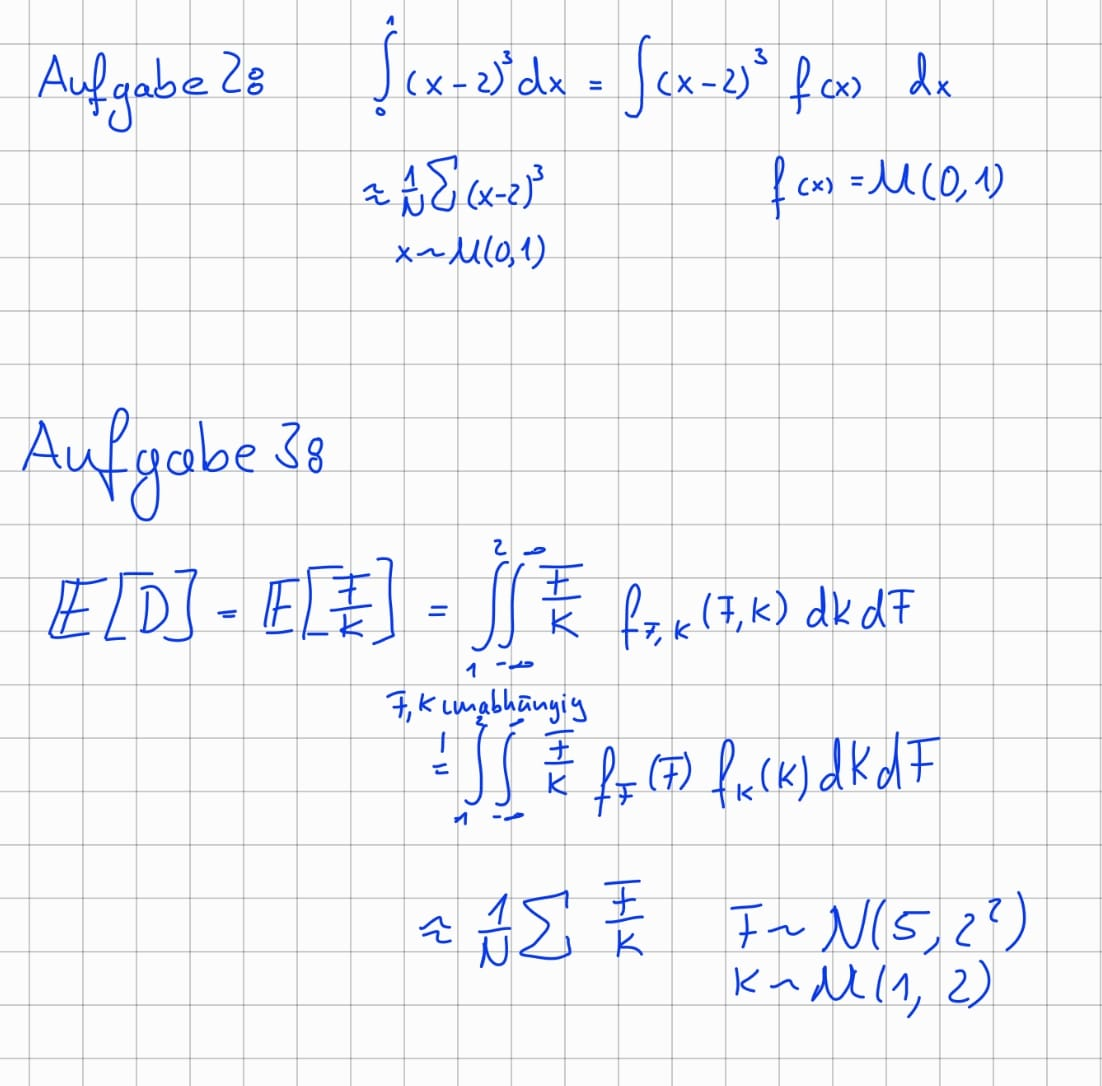 Aufgabe 28 ∫₀¹ (x-2)³ dx = ∫(x-2)³ f(x) dx
≈ 1/N Σ (x-2)³ f(x) = U(0,1)
x ~ U(0,1)
Aufgabe 38
E[D] = E[F/K] = ∫₁² ∫₋∞^∞ F/K f_F,K (F,K) dK dF
F,K unabhängig
=! ∫₁² ∫₋∞^∞ F/K f_F (F) f_K (K) dK dF
≈ 1/N Σ F/K F ~ N(5, 2²)
K ~ U(1, 2)